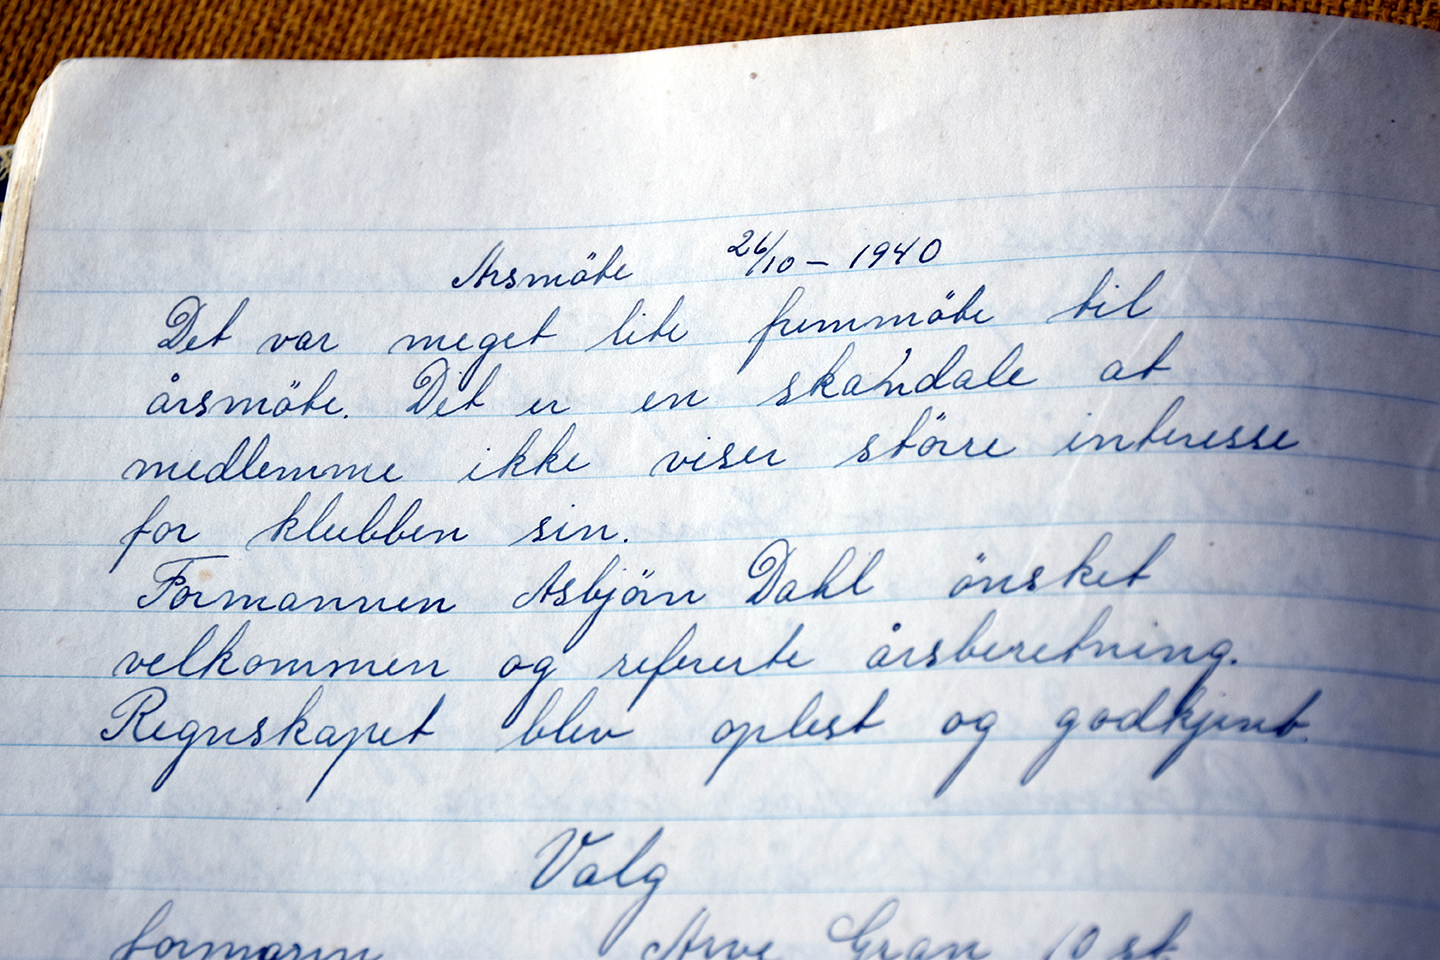 Årsmöte 26/10 – 1940
Det var meget lite fremmöte til
årsmöte. Det er en skandale at
medlemme ikke viser större interesse
for klubben sin.
Formannen Asbjörn Dahl önsket
velkommen og refererte årsberetning.
Regnskapet blev oplest og godkjent.
Valg
formann Arve Gran 10 st.